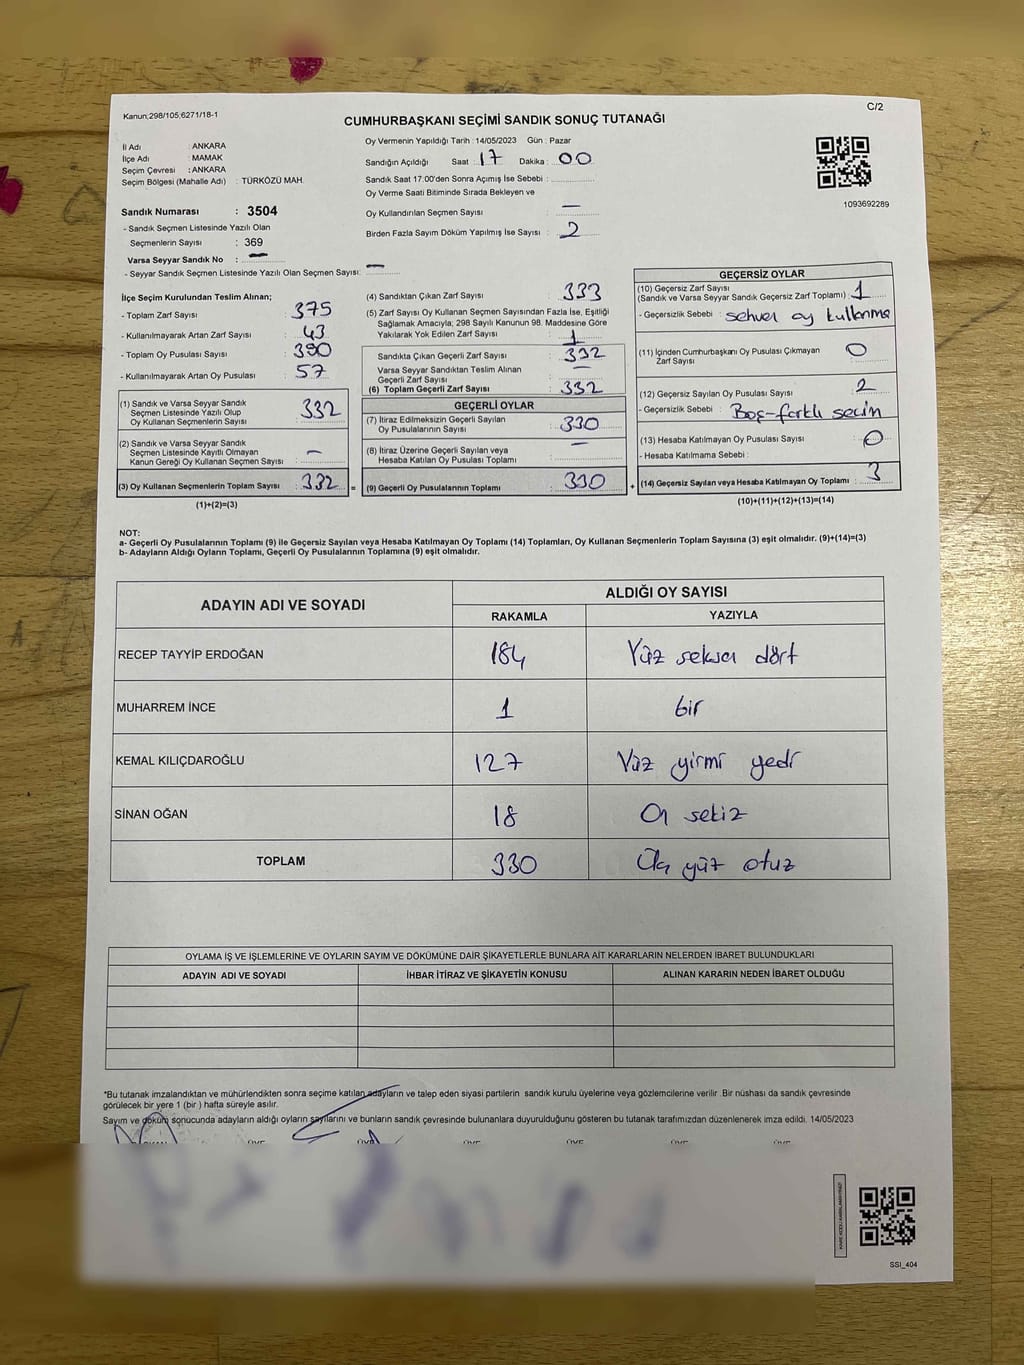 Kanun;298/105,6271/18-1
C/2
CUMHURBAŞKANI SEÇİMİ SANDIK SONUÇ TUTANAĞI
İl Adı : ANKARA
İlçe Adı : MAMAK
Seçim Çevresi : ANKARA
Seçim Bölgesi (Mahalle Adı) : TÜRKÖZÜ MAH.
Sandık Numarası : 3504
- Sandık Seçmen Listesinde Yazılı Olan
Seçmenlerin Sayısı : 369
Varsa Seyyar Sandık No : —
- Seyyar Sandık Seçmen Listesinde Yazılı Olan Seçmen Sayısı: —
Oy Vermenin Yapıldığı Tarih : 14/05/2023 Gün : Pazar
Sandığın Açıldığı Saat : 17 Dakika : 00
Sandık Saat 17:00'den Sonra Açımış İse Sebebi :
Oy Verme Saati Bitiminde Sırada Bekleyen ve
Oy Kullandırılan Seçmen Sayısı : —
Birden Fazla Sayım Döküm Yapılmış İse Sayısı : 2
1093692289
İlçe Seçim Kurulundan Teslim Alınan;
- Toplam Zarf Sayısı : 375
- Kullanılmayarak Artan Zarf Sayısı : 43
- Toplam Oy Pusulası Sayısı : 390
- Kullanılmayarak Artan Oy Pusulası : 57
(1) Sandık ve Varsa Seyyar Sandık
Seçmen Listesinde Yazılı Olup
Oy Kullanan Seçmenlerin Sayısı : 332
(2) Sandık ve Varsa Seyyar Sandık
Seçmen Listesinde Kayıtlı Olmayan
Kanun Gereği Oy Kullanan Seçmen Sayısı : —
(3) Oy Kullanan Seçmenlerin Toplam Sayısı : 332
(1)+(2)=(3)
(4) Sandıktan Çıkan Zarf Sayısı : 333
(5) Zarf Sayısı Oy Kullanan Seçmen Sayısından Fazla İse, Eşitliği
Sağlamak Amacıyla; 298 Sayılı Kanunun 98. Maddesine Göre
Yakılarak Yok Edilen Zarf Sayısı : 1
Sandıkta Çıkan Geçerli Zarf Sayısı : 332
Varsa Seyyar Sandıktan Teslim Alınan
Geçerli Zarf Sayısı : —
(6) Toplam Geçerli Zarf Sayısı : 332
GEÇERLİ OYLAR
(7) İtiraz Edilmeksizin Geçerli Sayılan
Oy Pusulalarının Sayısı : 330
(8) İtiraz Üzerine Geçerli Sayılan veya
Hesaba Katılan Oy Pusulası Toplamı : —
= (9) Geçerli Oy Pusulalarının Toplamı : 330
GEÇERSİZ OYLAR
(10) Geçersiz Zarf Sayısı : 1
(Sandık ve Varsa Seyyar Sandık Geçersiz Zarf Toplamı)
- Geçersizlik Sebebi : sehven oy kullanma
(11) İçinden Cumhurbaşkanı Oy Pusulası Çıkmayan
Zarf Sayısı : 0
(12) Geçersiz Sayılan Oy Pusulası Sayısı : 2
- Geçersizlik Sebebi : Boş-farklı seçim
(13) Hesaba Katılmayan Oy Pusulası Sayısı : 0
- Hesaba Katılmama Sebebi :
+ (14) Geçersiz Sayılan veya Hesaba Katılmayan Oy Toplamı : 3
(10)+(11)+(12)+(13)=(14)
NOT:
a- Geçerli Oy Pusulalarının Toplamı (9) ile Geçersiz Sayılan veya Hesaba Katılmayan Oy Toplamı (14) Toplamları, Oy Kullanan Seçmenlerin Toplam Sayısına (3) eşit olmalıdır. (9)+(14)=(3)
b- Adayların Aldığı Oyların Toplamı, Geçerli Oy Pusulalarının Toplamına (9) eşit olmalıdır.
ADAYIN ADI VE SOYADI ALDIĞI OY SAYISI
RAKAMLA YAZIYLA
RECEP TAYYİP ERDOĞAN 184 Yüz seksen dört
MUHARREM İNCE 1 bir
KEMAL KILIÇDAROĞLU 127 Yüz yirmi yedi
SİNAN OĞAN 18 On sekiz
TOPLAM 330 Üç yüz otuz
OYLAMA İŞ VE İŞLEMLERİNE VE OYLARIN SAYIM VE DÖKÜMÜNE DAİR ŞİKAYETLERLE BUNLARA AİT KARARLARIN NELERDEN İBARET BULUNDUKLARI
ADAYIN ADI VE SOYADI İHBAR İTİRAZ VE ŞİKAYETİN KONUSU ALINAN KARARIN NEDEN İBARET OLDUĞU
*Bu tutanak imzalandıktan ve mühürlendikten sonra seçime katılan adayların ve talep eden siyasi partilerin sandık kurulu üyelerine veya gözlemcilerine verilir. Bir nüshası da sandık çevresinde
görülecek bir yere 1 (bir) hafta süreyle asılır.
Sayım ve döküm sonucunda adayların aldığı oyların sayılarını ve bunların sandık çevresinde bulunanlara duyurulduğunu gösteren bu tutanak tarafımızdan düzenlenerek imza edildi. 14/05/2023
SSI_404